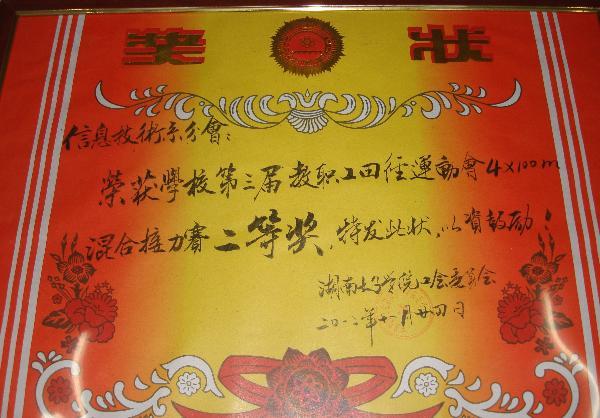 奖状
信息技術系分會：
榮获學校第三届教职工田徑運動會4×100m
混合接力賽二等奖，特发此状，以資鼓励！
湖南女子学院工会委员会
二〇一二年十一月廿四日